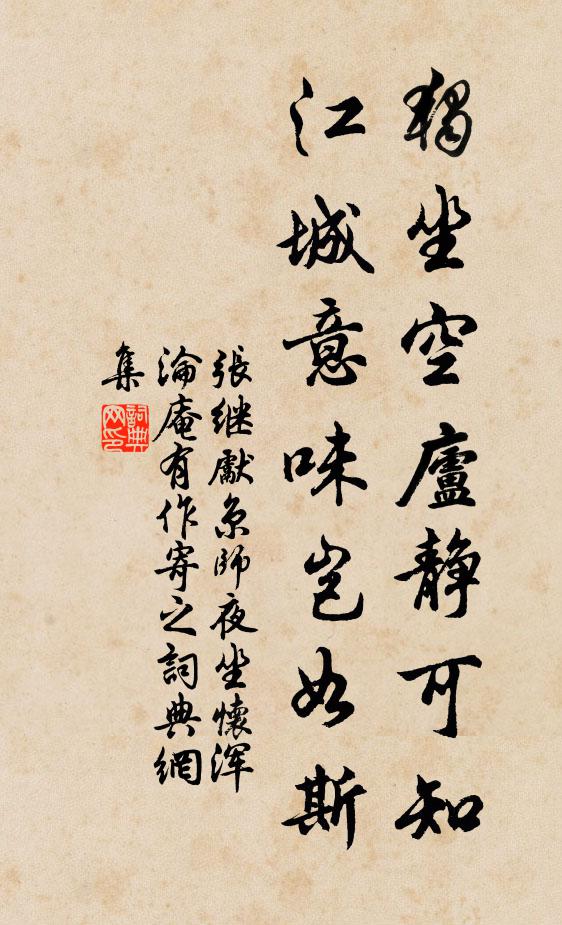 獨坐空廬靜可知
江城意味豈如斯
張继獻京師夜坐懷渾
淪庵有作寄之詞典網
集
詞典
网印